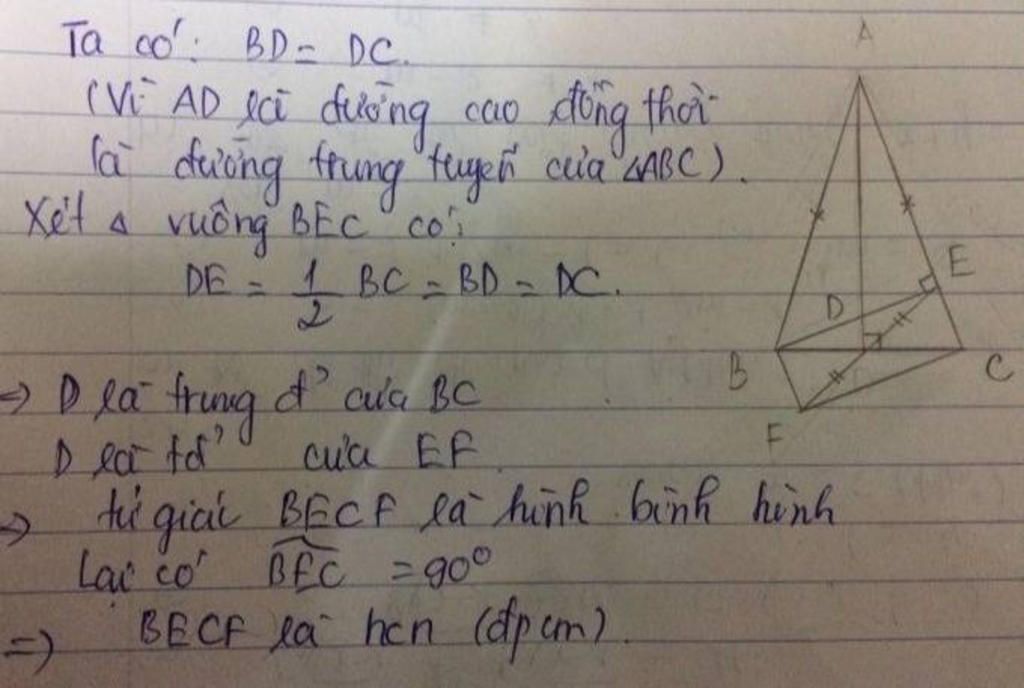 Ta có: BD = DC.
(Vì AD là đường cao đồng thời
là đường trung tuyến của ΔABC).
Xét Δ vuông BEC có:
DE = 1/2 BC = BD = DC.
=> D là trung đ' của BC
D là tđ' của EF.
=> tứ giác BECF là hình bình hình
Lại có BEC = 90°
=> BECF là hcn (đpcm).
A
E
D
B
C
F